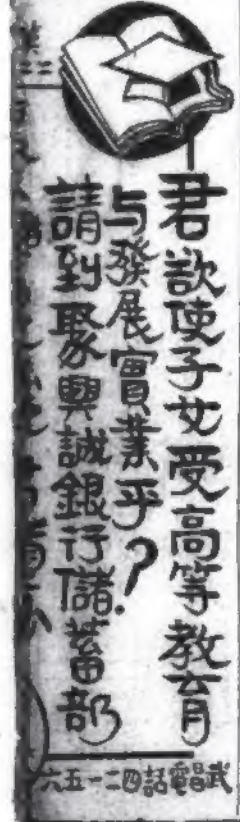 君欲使子女受高等教育
与發展實業乎？
請到聚興誠銀行儲蓄部
武昌電話四二一五六